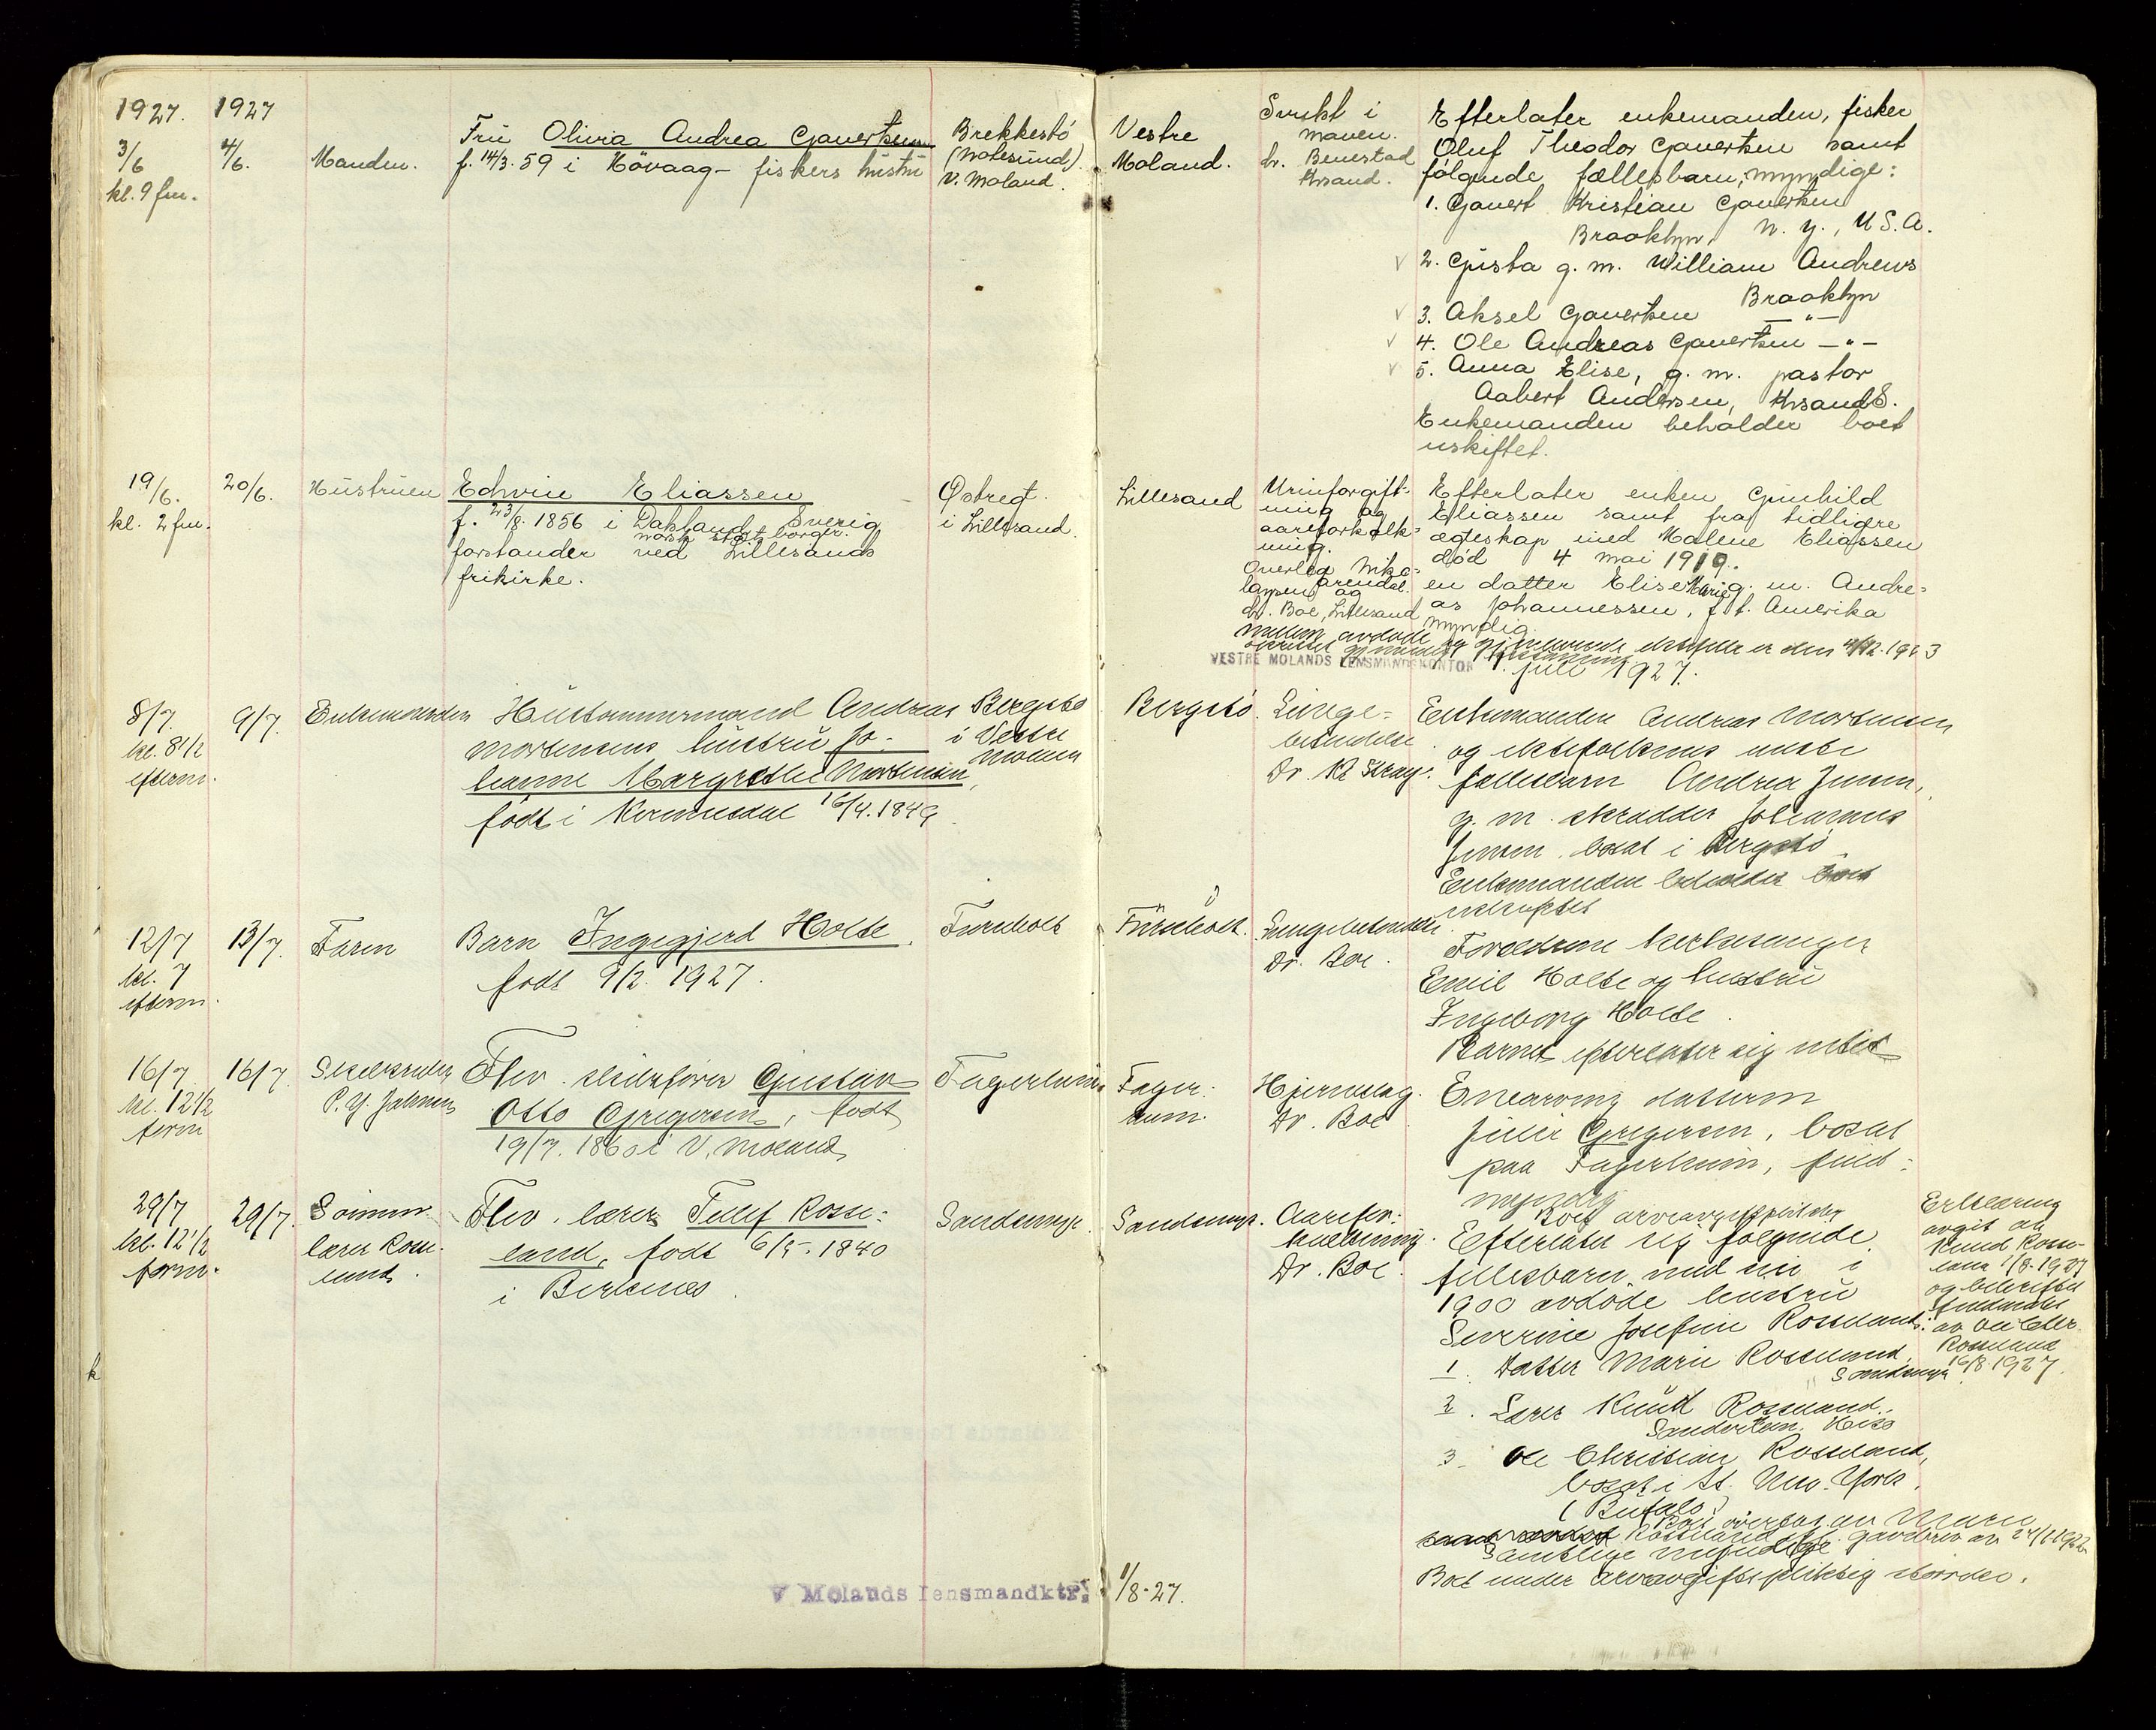 1927. 1927
3/6
kl. 9 fm.
4/6.
Manden.
Fru Olivia Andrea Gauertsen
f. 14/3. 59 i Hövaag - fiskers hustru
Brekkestö
(Aalesund).
V. Moland.
Vestre
Moland.
Svulst i
maven.
dr. Beuestad
Krsand.
Efterlater enkemanden, fisker
Oluf Theodor Gauertsen samt
følgende fællesbarn, myndige:
1. Gauert Kristian Gauertsen
Brooklyn, N. Y., U S. A.
2. Gusta g. m. William Andrews
Brooklyn
3. Aksel Gauertsen — " —
4. Ole Andreas Gauertsen — " —
5. Anna Elise, g. m. pastor
Aabert Andersen, Krsand S.
Enkemanden beholder boet
uskiftet.
19/6.
kl. 2 fm.
20/6.
Hustruen
Edvin Eliassen
f. 23/8. 1856 i Dakland, Sverig
norsk statsborger.
forstander ved Lillesands
frikirke.
Østregt.
i Lillesand.
Lillesand
Urinforgift-
ning og
aareforkalk-
ning.
Overlæg Niko-
laysen Arendal. og
dr. Boe, Lillesand
Efterlater enken Gunhild
Eliassen samt fra tidligere
ægteskap med Malene Eliassen
død 4 mai 1919.
en datter Elise Marie g. m. Andre-
as Johannessen, f. t. Amerika
myndig.
Mellem avdøde og gjenlevende ektefelle er den
VESTRE MOLANDS LENSMANDSKONTOR 1. juli 1927.
8/7
kl. 8 1/2
efterm.
9/7.
Enkemanden
Hustømmermand Andreas
Mortensens hustru Jo-
hanne Margrethe Mortensen,
født i 16/4. 1849
Bergstø
i Vestre
Moland
Bergstø.
Lunge-
betendelse.
Dr. K. Stray.
Enkemanden Andreas Mortensen
og ektefolkenes eneste
fellesbarn Andrea Jensen,
g. m. skrædder Johannes
Jensen, bosat i Bergstø
Enkemanden beholder boet
uskiftet
12/7
kl. 7
efterm.
13/7.
Faren
Barn Ingegjerd Holte,
født 9/2. 1927.
Furuholt
Furuholt.
Lungebetendelse.
Dr. Boe.
Foreldrene kirkesanger
Emil Holte og hustru
Ingeborg Holte.
Barnet efterlater sig intet
16/7
kl. 12 1/2
form
16/7
P. G. Johnsen
Fhv. skibsfører Gustav
Otto Gregersen, født
19/7. 1860 i V. Moland
Fagerheim
Fager-
heim.
Hjerneslag.
Dr. Boe
Enearving datteren
Julie Gregersen, bosat
paa Fagerheim, fuld-
myndig
Boet arveavgiftspliktig
29/7
kl. 12 1/2
form.
29/7.
Sønnen
lærer Rosse-
land.
Fhv. lærer Tellef Rosse-
land, født 6/5. 1840
i Birkenes.
Sandsmyr.
Sandsmyr.
Aarefor-
kalkning.
Dr. Boe.
Efterlater sig følgende
fellesbarn med sin i
1900 avdøde hustru
Severine Josefine Rosseland:
1. Datter Marie Rosseland,
Sandsmyr.
2. Lærer Knud Rosseland,
His
3. Ole Christian Rosseland,
bosat i St. New York.
(Bufalo)
Boet overtas av Marie
Rosseland gavebrev av
Samtlige myndige.
Boet under arveavgiftspliktig størrelse.
Erklæring
avgit av
Knud Rosse-
land 1/8-1927
og bekræftet
av Ole Chr.
Rosseland
16/8. 1927.
V Molands lensmandktr.
1/8-27.